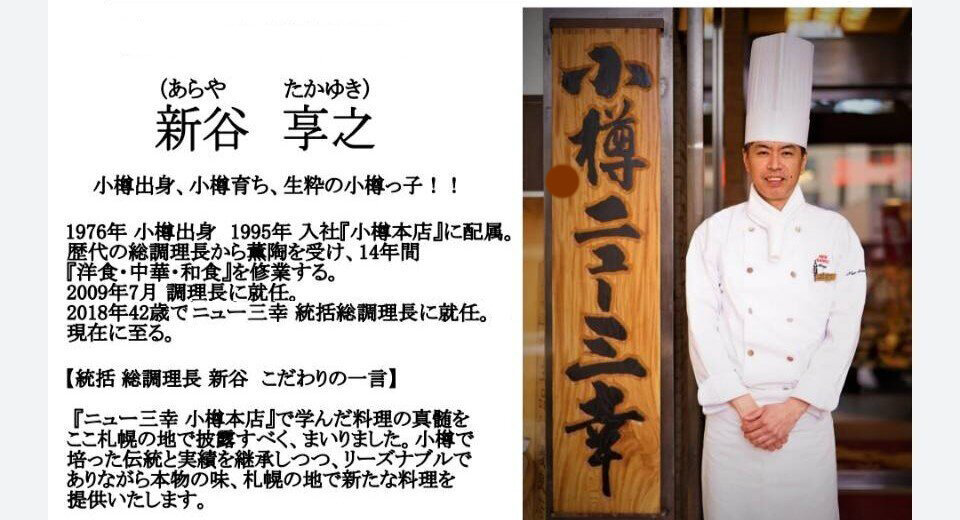 (あらや　たかゆき)
新谷　享之
小樽出身、小樽育ち、生粋の小樽っ子！！
1976年 小樽出身　1995年 入社『小樽本店』に配属。
歴代の総調理長から薫陶を受け、14年間
『洋食・中華・和食』を修業する。
2009年7月 調理長に就任。
2018年42歳でニュー三幸 統括総調理長に就任。
現在に至る。
【統括 総調理長 新谷　こだわりの一言】
『ニュー三幸 小樽本店』で学んだ料理の真髄を
ここ札幌の地で披露すべく、まいりました。小樽で
培った伝統と実績を継承しつつ、リーズナブルで
ありながら本物の味、札幌の地で新たな料理を
提供いたします。
小樽ニュー三幸